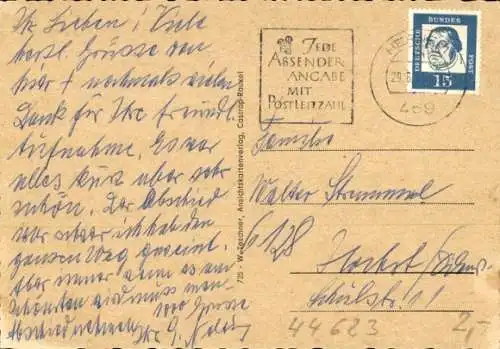 Ihr Lieben! Viele
herzl. Grüsse von
hier + nochmals vielen
Dank für Ihre freundl.
Aufnahme. Es war
alles kurz aber sehr
schön. Der Abschied
war schwer ich hab den
ganzen Weg geweint.
Aber immer wenn es am
schönsten ist muss man
Abschied nehmen
1000 Grüsse
JEDE
ABSENDER
ANGABE
MIT
POSTLEITZAHL
DEUTSCHE BUNDESPOST
15
459
Familie
Walter
6128
Schulstr. 11
44623
2,-
725 - W. Ansichtskartenverlag, Castrop-Rauxel